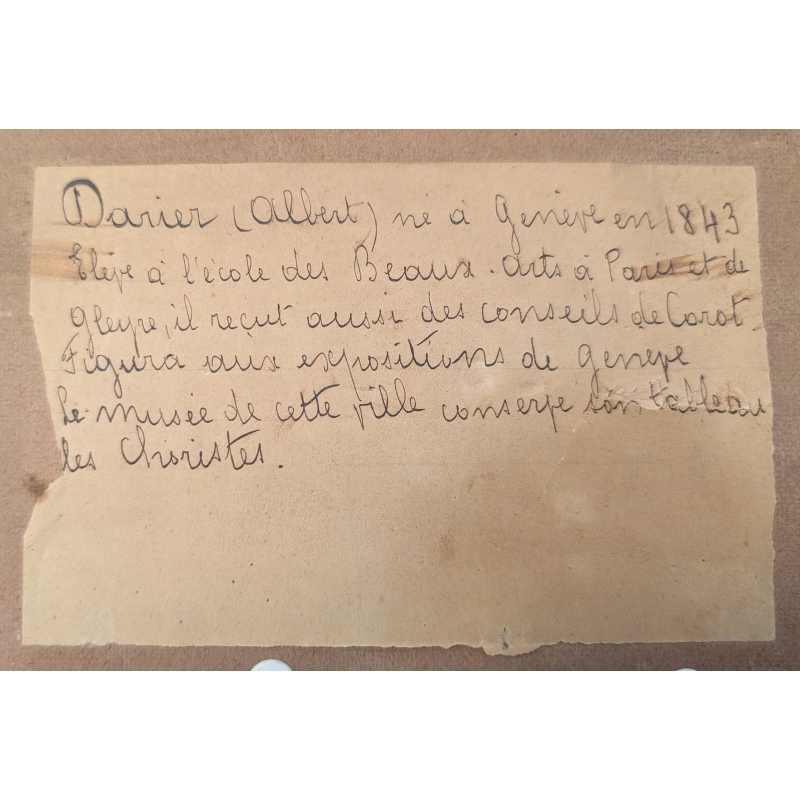 Darier (Albert) né à Genève en 1843
Elève à l'école des Beaux-Arts à Paris et de
Gleyre, il reçut aussi des conseils de Corot
Figura aux expositions de Genève
Le musée de cette ville conserve son tableau
les Choristes.